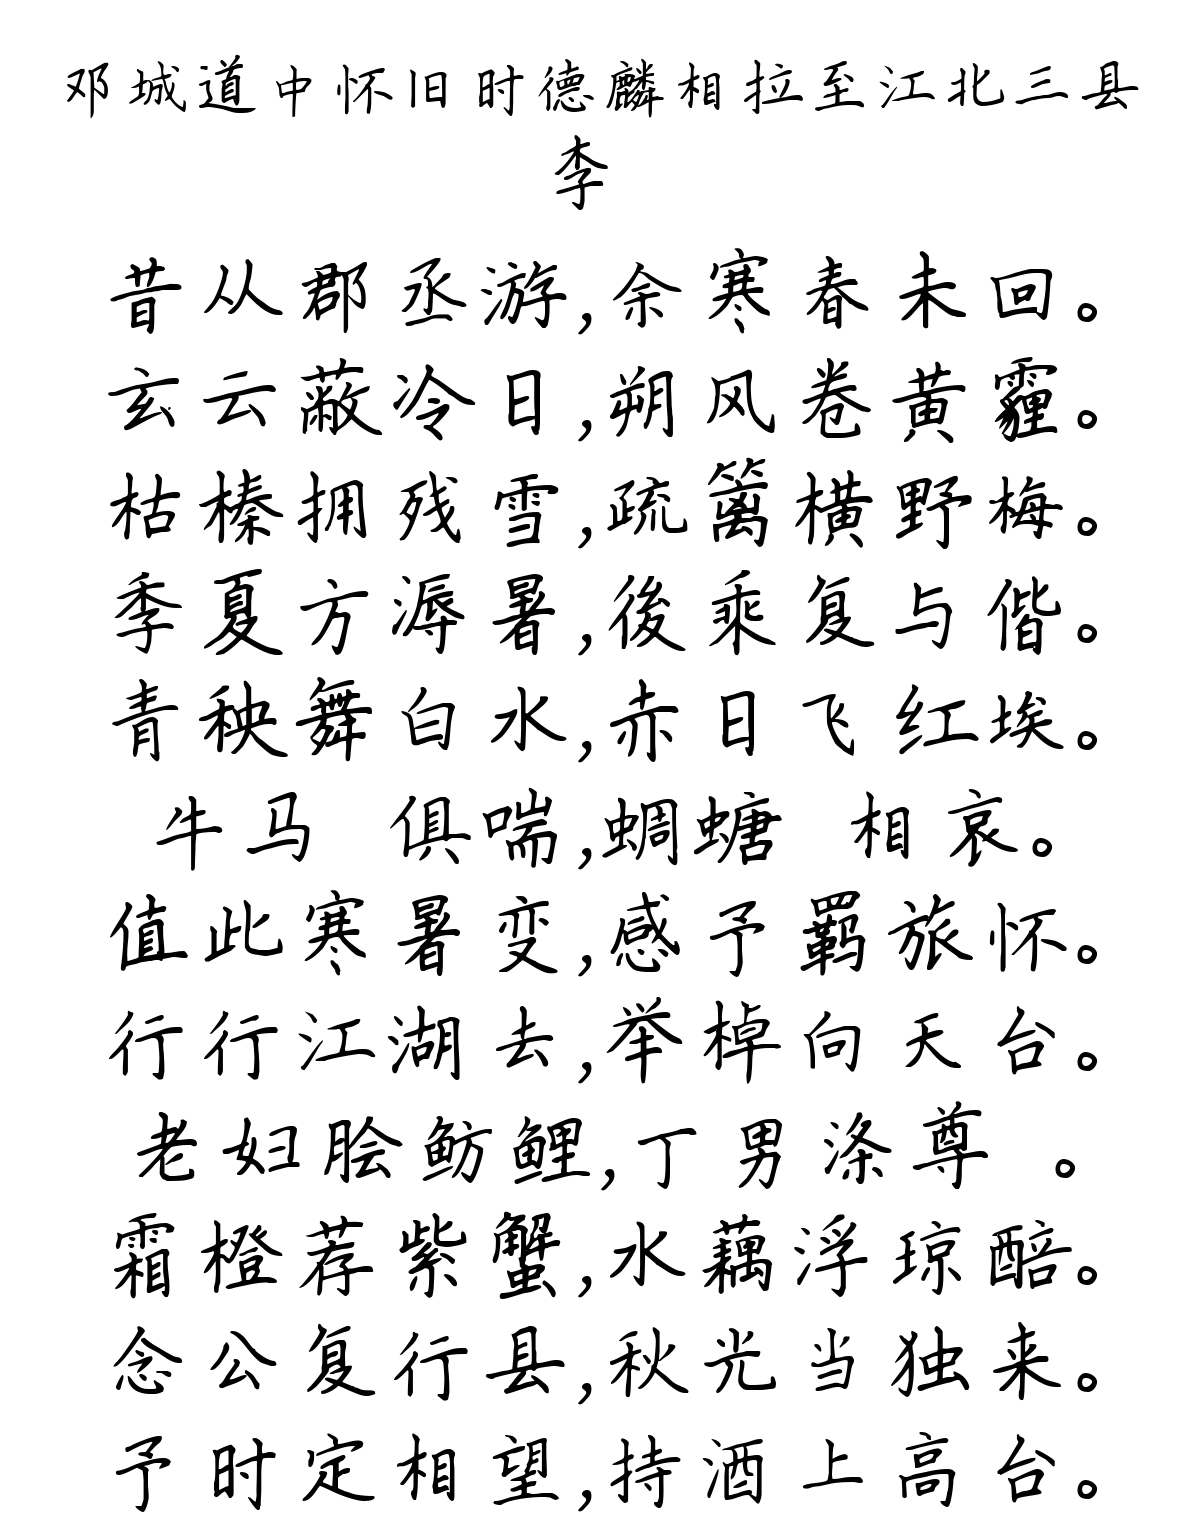 邓城道中怀旧时德麟相拉至江北三县
李
昔从郡丞游,余寒春未回。
玄云蔽冷日,朔风卷黄霾。
枯榛拥残雪,疏篱横野梅。
季夏方溽暑,後乘复与偕。
青秧舞白水,赤日飞红埃。
牛马 俱喘,蜩螗 相哀。
值此寒暑变,感予羁旅怀。
行行江湖去,举棹向天台。
老妇脍鲂鲤,丁男涤尊 。
霜橙荐紫蟹,水藕浮琼醅。
念公复行县,秋光当独来。
予时定相望,持酒上高台。